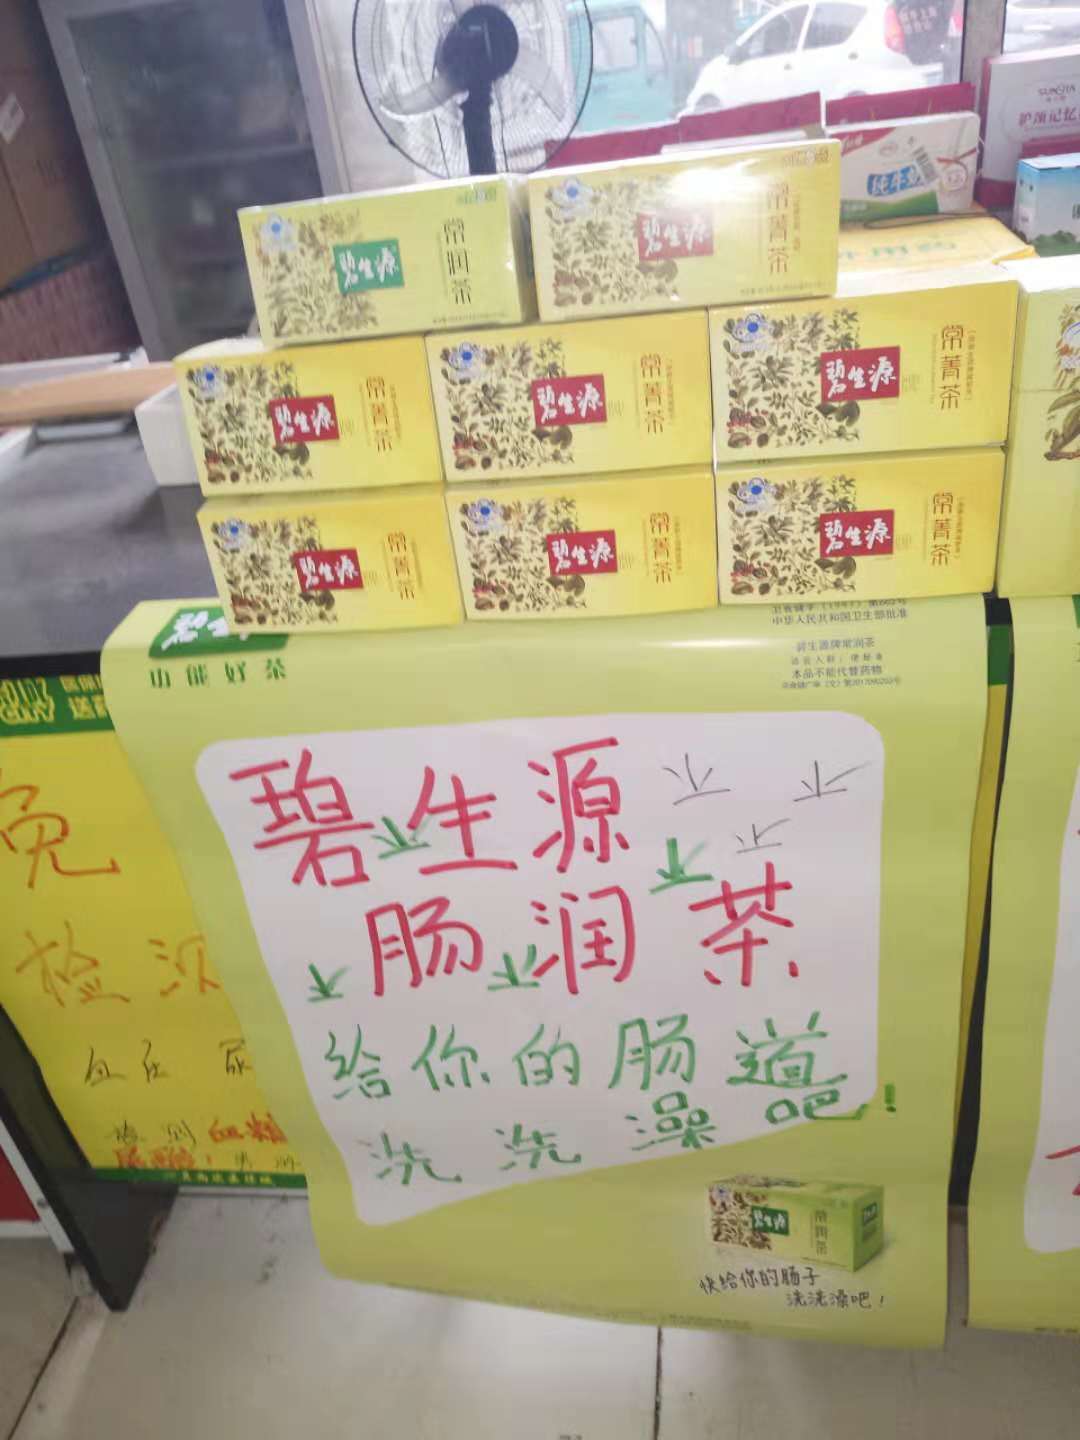 SUNSTA
护颈记忆
纯牛
碧生源
常润茶
碧生源
常菁茶
碧生源
常菁茶
碧生源
常菁茶
碧生源
常菁茶
碧生源
常菁茶
碧生源
常菁茶
碧生源
常菁茶
功能好茶
中华人民共和国卫生部批准
碧生源牌常润茶
适宜人群：便秘者
本品不能代替药物
碧生源
肠润茶
给你的肠道
洗洗澡吧！
碧生源
常润茶
快给你的肠子
洗洗澡吧！
免
检测
血压 尿
检测血糖